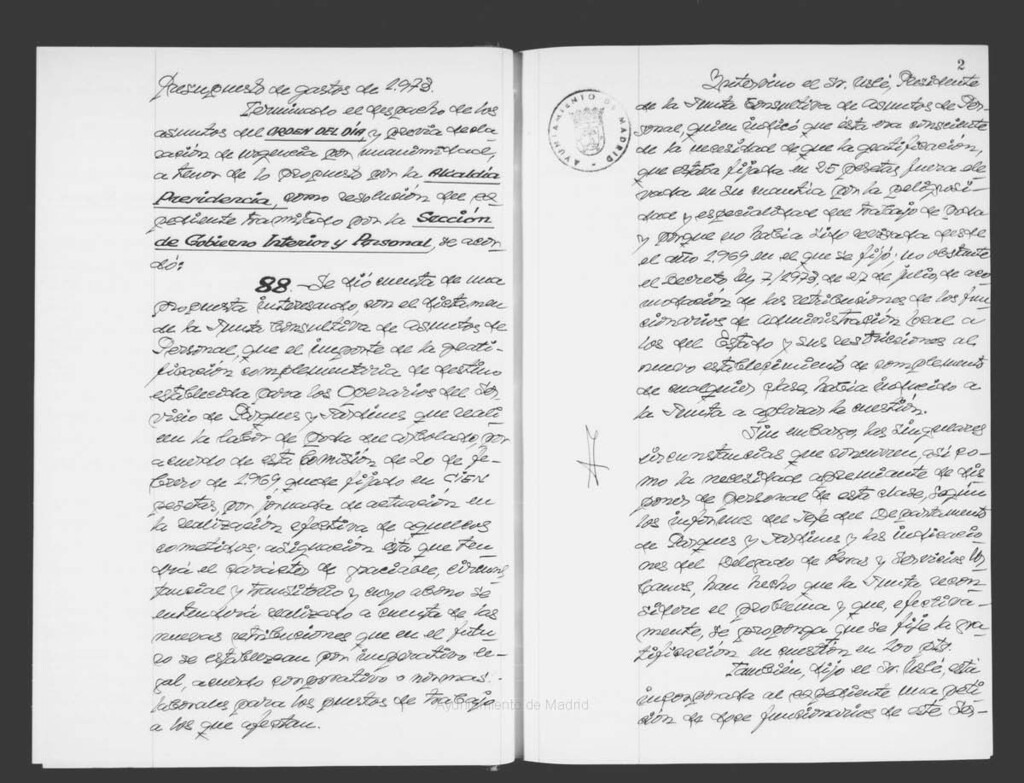 Presupuesto de gastos de 1.973.
Terminado el despacho de los
asuntos del ORDEN DEL DÍA y previa decla
ración de urgencia por unanimidad,
a tenor de lo propuesto por la Alcaldía
Presidencia, como resolución del ex
pediente tramitado por la Sección
de Gobierno Interior y Personal, se acor
dó:
88.- Se dió cuenta de una
propuesta interesando, con el dictamen
de la Junta Consultiva de asuntos de
Personal, que el importe de la grati-
ficación complementaria de destino
establecida para los Operarios del Ser
vicio de Parques y Jardines que reali
cen la labor de poda del arbolado, por
acuerdo de esta Comisión de 20 de fe
brero de 1.969, quede fijado en CIEN
pesetas, por jornada de actuación en
la realización efectiva de aquellos
cometidos; asignación esta que ten
drá el carácter de graciable, circuns
tancial y transitorio y cuyo abono se
entenderá realizado a cuenta de las
nuevas retribuciones que en el futu
ro se establezcan por imperativo le
gal, acuerdo corporativo o normas
laborales para los puestos de trabajo
a los que afectan.
2
AYUNTAMIENTO DE MADRID
Intervino el Sr. Presidente
de la Junta Consultiva de asuntos de Per
sonal, quien indicó que ésta era consciente
de la necesidad de que la gratificación,
que estaba fijada en 25 pesetas, fuera ele
vada en su cuantía por la peligrosi-
dad y especialidad del trabajo de poda
y porque no había sido revisada desde
el año 1.969 en el que se fijó; no obstante
el Decreto ley 7/1973, de 27 de julio, de aco
modación de las retribuciones de los fun
cionarios de Administración local a
los del Estado y sus restricciones al
nuevo establecimiento de complementos
de cualquier clase, había inducido a
la Junta a aplazar la cuestión.
Sin embargo, las singulares
circunstancias que concurren, así co-
mo la necesidad apremiante de dis
poner de personal de esta clase, según
los informes del Jefe del Departamento
de Parques y Jardines y las indicacio-
nes del Delegado de Obras y Servicios Ur
banos, han hecho que la Junta recon
sidere el problema y que, efectiva-
mente, se proponga que se fije la gra
tificación en cuestión en 100 pts.
También, dijo el Sr. está
incorporada al expediente una peti
ción de doce funcionarios de este Ser-
Ayuntamiento de Madrid